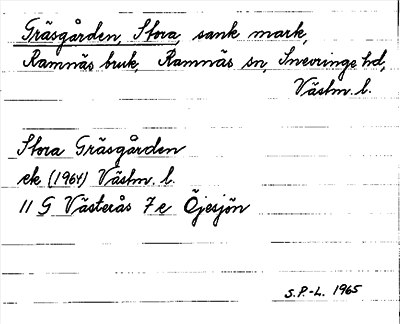 Träsgården, Stora, sank mark,
Ramnäs bruk, Ramnäs sn, Snevringe hd,
Västm. l.
Stora Gräsgården
ek (1964) Västm. l.
11 G Västerås 7 e Öjesjön
S.P.-L. 1965